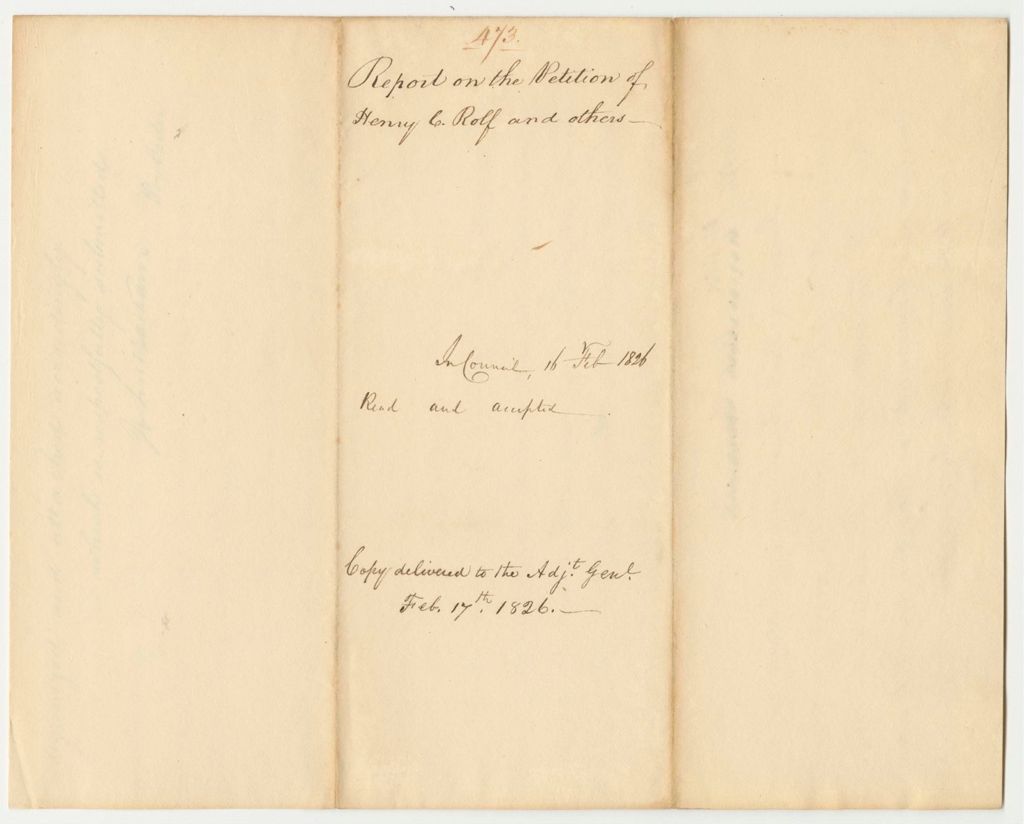 473.
Report on the Petition of
Henry C. Rolf and others—
In Council, 16 Feb 1826
Read and accepted
Copy delivered to the Adjt. Genl.
Feb. 17th. 1826.—